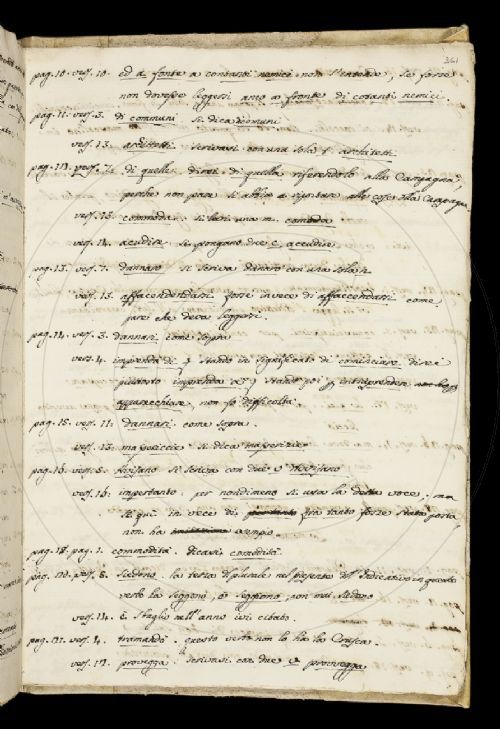 361
pag. 10. vers. 10. ed a fonte a cotanti nemici non s'intende. Se forse
non dovesse leggersi anco a fronte di cotanti nemici.
pag. 11. vers. 3. di communi si dica comuni
vers. 13. architetti. scrivasi con una sola t. architetti
vers. 7. di quelle. direi di quella riferendolo alla Campagna,
perche non pare si abbia a riportare alle cose della Campagna
vers. 13. commoda. si levi una m. comoda
vers. 14. acudire. si pongano due c. accudire
pag. 13. vers. 7. dannaro si scriva danaro con una sola n
vers. 13. affacendendarsi forse invece di affaccendarsi come
parei che deva leggersi.
pag. 14. vers. 3. dannari come sopra
vers. 4. imprenda di stando in significato di cominciare direi
piuttosto imprenda a stando poi intraprendere
apparecchiare, non fo difficoltà.
pag. 15. vers. 11. dannari. come sopra.
vers. 13. si dica
pag. 16. vers. 8. si scriva con due v
vers. 16. impertanto. per nondimeno si usa la detta voce; ma
se qui in vece di fra tanto forse stata posta,
non ha esempio.
pag. 18. pag. 1. commodità. dicasi comodità.
vers. 8. siedono. la terza di plurale nel presente dell' Indicativo in questo
verbo ha seggono, o seggiono, non mai siedono
vers. 14. E sbaglio nell'anno ivi citato.
vers. 4. tramandò. questo verbo non lo ha la Crusca.
vers. 17. provegga. scrivasi con due v provvegga